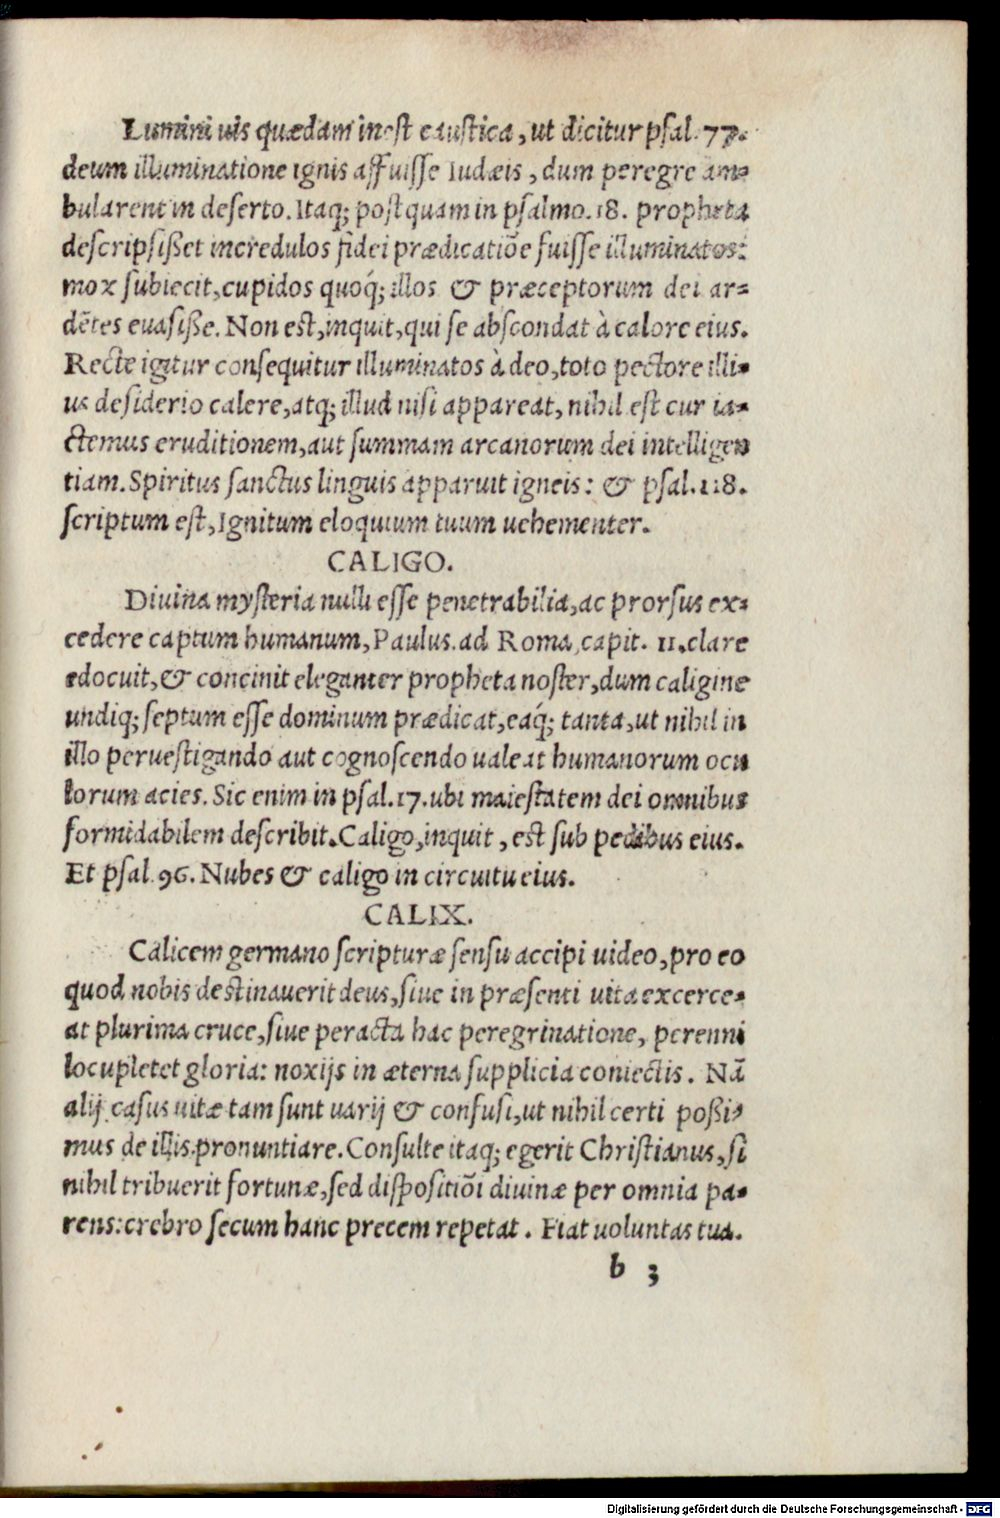 Lumini uis quædam inest caustica, ut dicitur psal. 77.
deum illuminatione ignis affuisse Iudæis, dum peregre am-
bularent in deserto. Itaq; postquam in psalmo. 18. propheta
descripsißet incredulos fidei prædicatiōe fuisse illuminatos:
mox subiecit, cupidos quoq́; illos & præceptorum dei ar-
dētes euasiße. Non est, inquit, qui se abscondat à calore eius.
Recte igitur consequitur illuminatos à deo, toto pectore illi-
us desiderio calere, atq; illud nisi appareat, nihil est cur ia-
ctemus eruditionem, aut summam arcanorum dei intelligen
tiam. Spiritus sanctus linguis apparuit igneis: & psal. 118.
scriptum est, Ignitum eloquium tuum uehementer.
CALIGO.
Diuina mysteria nulli esse penetrabilia, ac prorsus ex-
cedere captum humanum, Paulus. ad Roma, capit. 11. clare
edocuit, & concinit eleganter propheta noster, dum caligine
undiq; septum esse dominum prædicat, eaq́; tanta, ut nihil in
illo peruestigando aut cognoscendo ualeat humanorum ocu
lorum acies. Sic enim in psal. 17. ubi maiestatem dei omnibus
formidabilem describit. Caligo, inquit, est sub pedibus eius.
Et psal. 96. Nubes & caligo in circuitu eius.
CALIX.
Calicem germano scripturæ sensu accipi uideo, pro eo
quod nobis destinauerit deus, siue in præsenti uita excerce-
at plurima cruce, siue peracta hac peregrinatione, perenni
locupletet gloria: noxijs in æterna supplicia coniectis. Nā
alij casus uitæ tam sunt uarij & confusi, ut nihil certi poßi-
mus de illis pronuntiare. Consulte itaq; egerit Christianus, si
nihil tribuerit fortunæ, sed dispositiōi diuinæ per omnia pa-
rens: crebro secum hanc precem repetat. Fiat uoluntas tua.
b 3
Digitalisierung gefördert durch die Deutsche Forschungsgemeinschaft - DFG